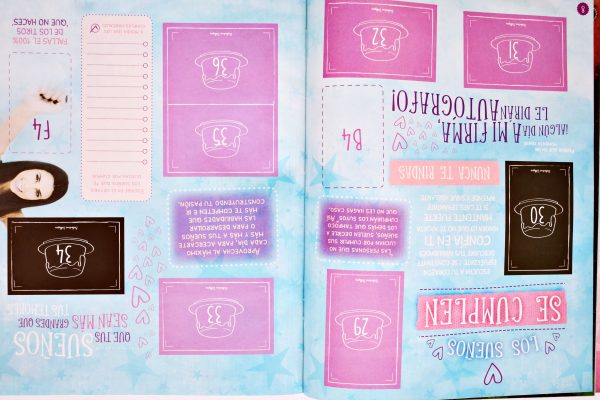 LOS SUEÑOS
SE CUMPLEN
29
ESCUCHA A TU CORAZÓN
ESFUÉRZATE Y SÉ CONSTANTE
CONFÍA EN TI
MANTENTE FUERTE
SI TE CAES LEVÁNTATE
APRENDE Y SIGUE ADELANTE
NUNCA TE RINDAS
30
LAS PERSONAS QUE NO
LUCHAN POR CUMPLIR SUS
SUEÑOS, SUELEN DECIRLE A
LOS DEMÁS QUE TAMPOCO
CUMPLIRÁN LOS SUYOS.
QUE NO LES HAGAS CASO.
B4
¡ALGÚN DÍA A MI FIRMA,
LE DIRÁN AUTÓGRAFO!
31
32
8
QUE TUS
SUEÑOS
SEAN MÁS
GRANDES QUE
TUS TEMORES
33
34
APROVECHA AL MÁXIMO
CADA DÍA PARA ACERCARTE
MÁS Y MÁS A TUS SUEÑOS
O PARA DESARROLLAR
LAS HABILIDADES QUE
MÁS TE COMPETEN E IR
CONSTRUYENDO TU PASIÓN.
35
36
F4
FALLAS EL 100%
DE LOS TIROS
QUE NO HACES.